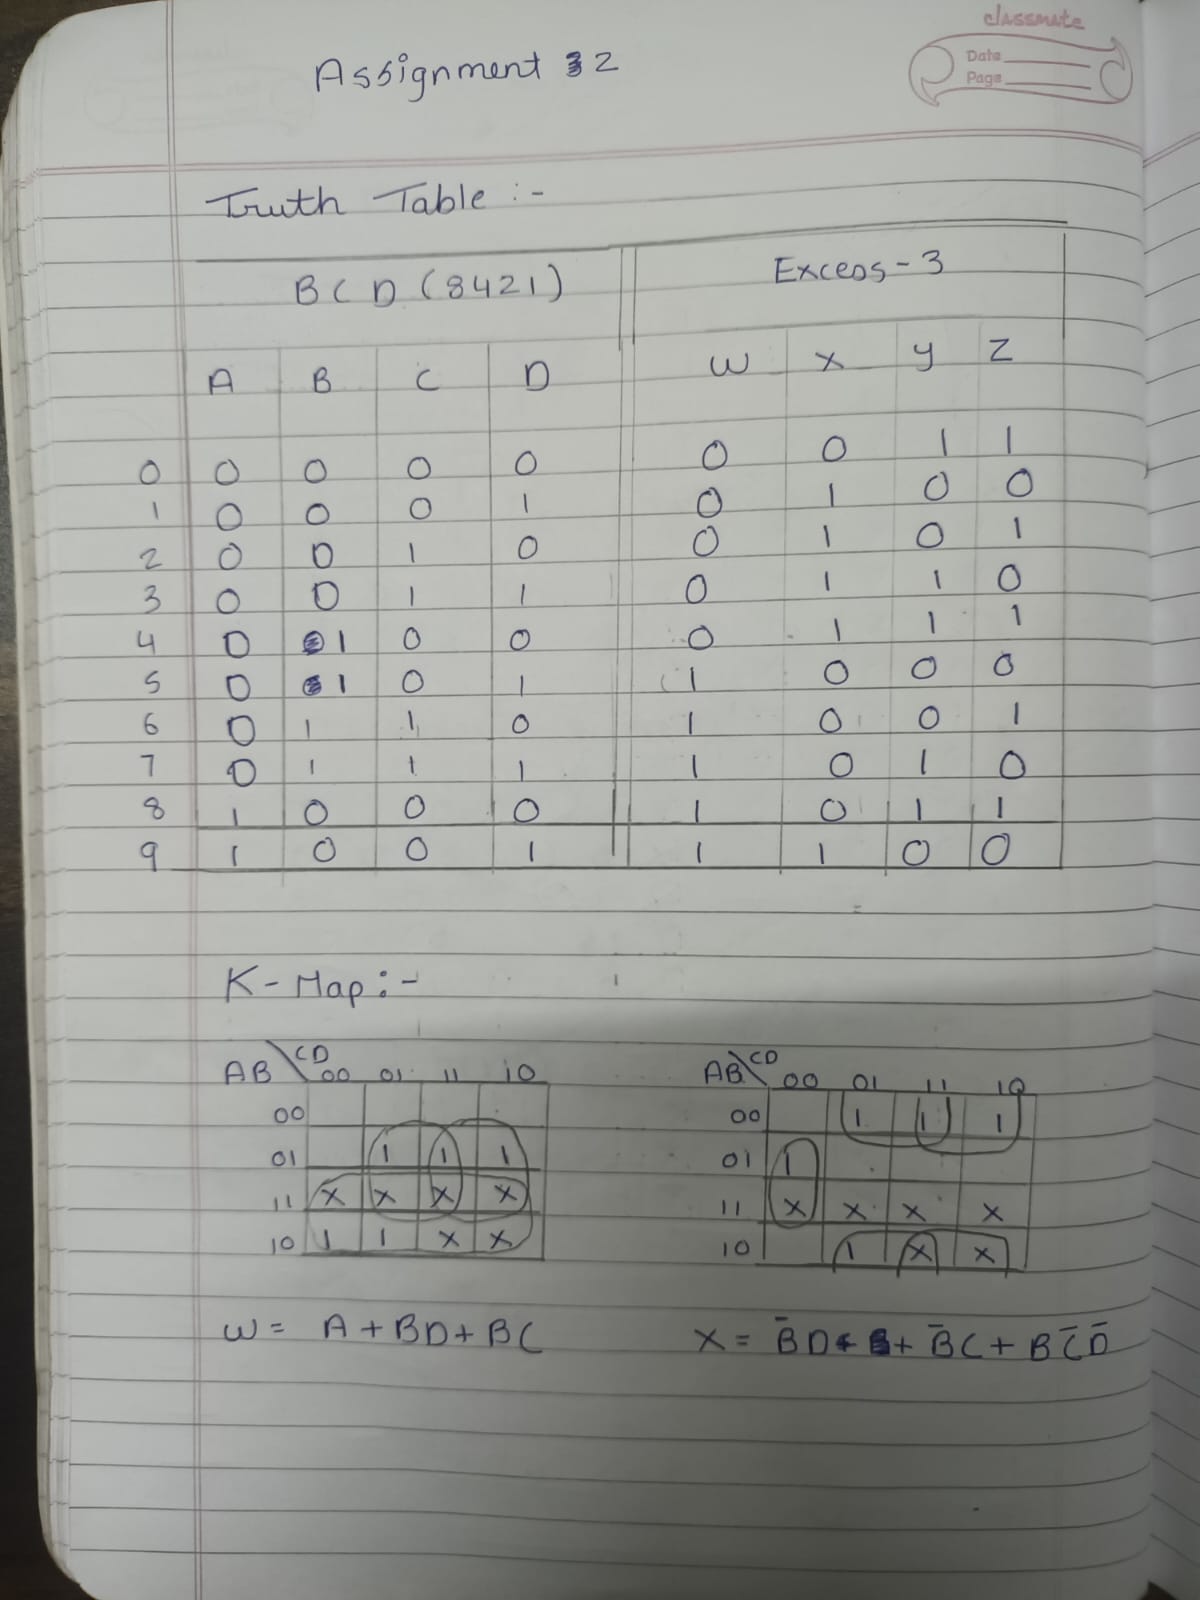 classmate
Date
Page
Assignment 2
Truth Table :-
BCD (8421) Excess-3
A B C D W X Y Z
0 0 0 0 0 0 0 1 1
1 0 0 0 1 0 1 0 0
2 0 0 1 0 0 1 0 1
3 0 0 1 1 0 1 1 0
4 0 1 0 0 0 1 1 1
5 0 1 0 1 1 0 0 0
6 0 1 1 0 1 0 0 1
7 0 1 1 1 1 0 1 0
8 1 0 0 0 1 0 1 1
9 1 0 0 1 1 1 0 0
K-Map :-
AB\CD 00 01 11 10 AB\CD 00 01 11 10
00 00 1 1 1
01 1 1 1 01 1
11 X X X X 11 X X X X
10 1 1 X X 10 1 X X
W = A + BD + BC X = B̄D + B̄C + BC̄D̄